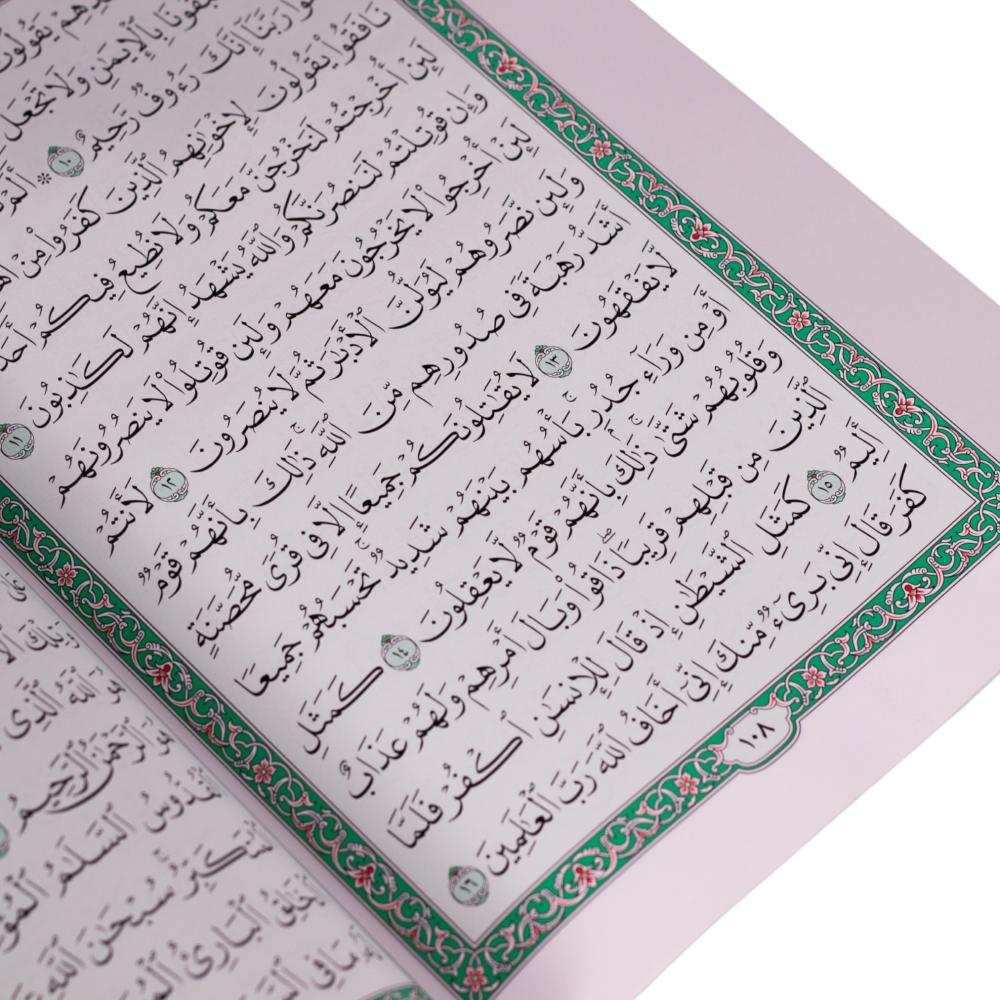 يَقُولُونَ
بِٱلْإِيمَٰنِ وَلَا تَجْعَلْ
رَبَّنَآ إِنَّكَ رَءُوفٌ رَّحِيمٌ ١٠ * أَلَمْ
نَافَقُوا۟ يَقُولُونَ لِإِخْوَٰنِهِمُ ٱلَّذِينَ كَفَرُوا۟ مِنْ
لَئِنْ أُخْرِجْتُمْ لَنَخْرُجَنَّ مَعَكُمْ وَلَا نُطِيعُ فِيكُمْ
وَإِن قُوتِلْتُمْ لَنَنصُرَنَّكُمْ وَٱللَّهُ يَشْهَدُ إِنَّهُمْ لَكَٰذِبُونَ ١١
لَئِنْ أُخْرِجُوا۟ لَا يَخْرُجُونَ مَعَهُمْ وَلَئِن قُوتِلُوا۟ لَا يَنصُرُونَهُمْ
وَلَئِن نَّصَرُوهُمْ لَيُوَلُّنَّ ٱلْأَدْبَٰرَ ثُمَّ لَا يُنصَرُونَ ١٢ لَأَنتُمْ
أَشَدُّ رَهْبَةً فِى صُدُورِهِم مِّنَ ٱللَّهِ ۚ ذَٰلِكَ بِأَنَّهُمْ قَوْمٌ
لَّا يَفْقَهُونَ ١٣ لَا يُقَٰتِلُونَكُمْ جَمِيعًا إِلَّا فِى قُرًى مُّحَصَّنَةٍ
أَوْ مِن وَرَآءِ جُدُرٍۭ ۚ بَأْسُهُم بَيْنَهُمْ شَدِيدٌ ۚ تَحْسَبُهُمْ جَمِيعًا
وَقُلُوبُهُمْ شَتَّىٰ ۚ ذَٰلِكَ بِأَنَّهُمْ قَوْمٌ لَّا يَعْقِلُونَ ١٤ كَمَثَلِ
ٱلَّذِينَ مِن قَبْلِهِمْ قَرِيبًا ۖ ذَاقُوا۟ وَبَالَ أَمْرِهِمْ وَلَهُمْ عَذَابٌ
أَلِيمٌ ١٥ كَمَثَلِ ٱلشَّيْطَٰنِ إِذْ قَالَ لِلْإِنسَٰنِ ٱكْفُرْ فَلَمَّا
كَفَرَ قَالَ إِنِّى بَرِىٓءٌ مِّنكَ إِنِّىٓ أَخَافُ ٱللَّهَ رَبَّ ٱلْعَٰلَمِينَ ١٦
١٠٨
ٱللَّهُ ٱلَّذِى
ٱلرَّحْمَٰنُ ٱلرَّحِيمُ
ٱلسَّلَٰمُ
سُبْحَٰنَ ٱللَّهِ
ٱلْبَارِئُ
مَا فِى